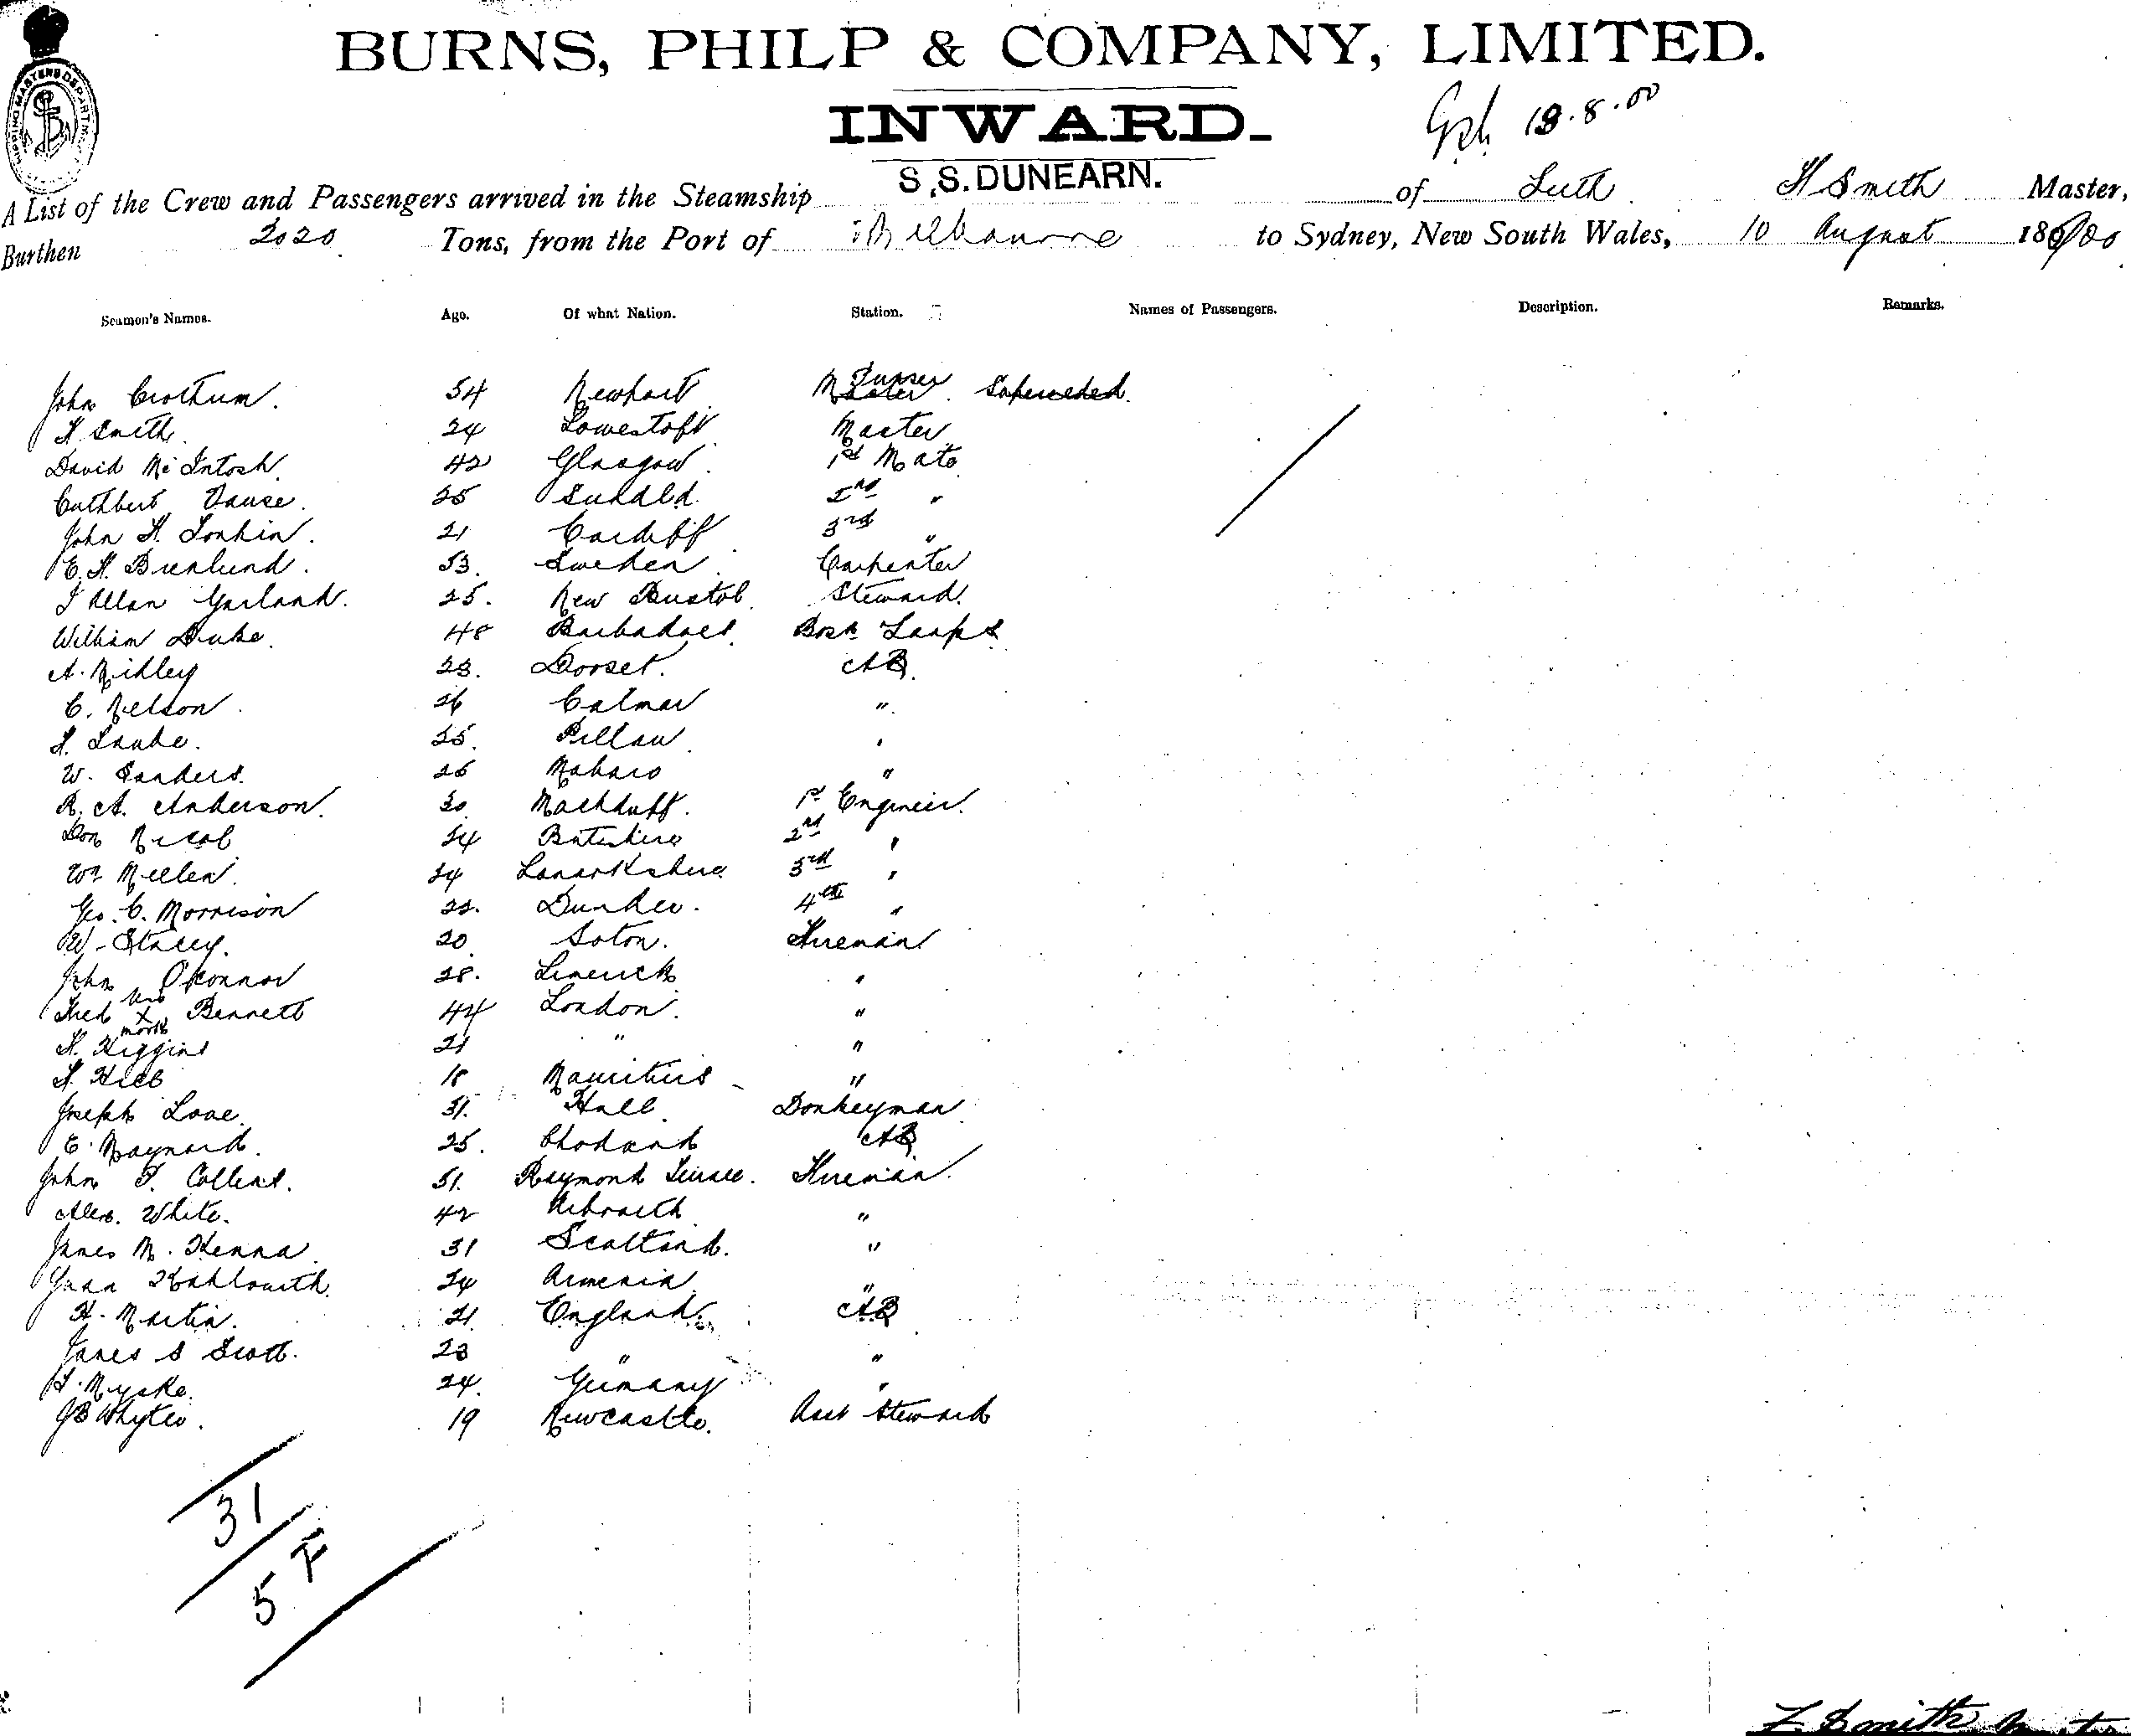 BURNS, PHILP & COMPANY, LIMITED.
INWARD.
Gph 18.8.00
SHIPPING MASTERS DEPARTM
A List of the Crew and Passengers arrived in the Steamship S.S. DUNEARN. of Leith H Smith Master,
Burthen 2020 Tons, from the Port of Melbourne to Sydney, New South Wales, 10 August 1900
Seamen's Names. Age. Of what Nation. Station. Names of Passengers. Description. Remarks.
John Crothum. 54 Newport Master Superseded.
H Smith. 24 Lowestoft Master
David McIntosh. 42 Glasgow. 1st Mate
Cuthbert Vause. 25 Sundld. 2nd "
John H. Lonkin. 21 Cardiff 3rd "
E. H. Brunlund. 53. Sweden. Carpenter
J Allan Garland. 25. New Bristol Steward.
William Duke. 48 Barbadoes Bosn Lamps
A. Ridley 23. Dorset. AB.
C. Nelson. 26 Calmar ".
H. Laube. 25. Pillau "
W. Sanders. 26 "
R. A. Anderson. 30. Macduff. 1st Engineer.
Don Nicol 34 Buteshire 2nd "
Wm Mellen. 24 Lanarkshire 3rd "
Geo. C. Morrison 22. Dundee. 4th "
W. Stacey. 20 Soton. Fireman
John O'Connor 28. Limerick "
Fred his X mark Bennett 44 London. "
H. Higgins 21 " "
H. Hill 18 Mauritius "
Joseph Love. 31. Hull Donkeyman
E. Maynard. 25. AB
John F. Collins. 51. Raymond Terrace. Fireman.
Alex. White. 42 Arbroath "
James McKenna 31 Scotland. "
24 Armenia "
H. Martin. 21. England. AB
James S Scott. 23 " "
24. Germany "
JB Whyte. 19 Newcastle. Asst Steward
31
5 F
H Smith Master